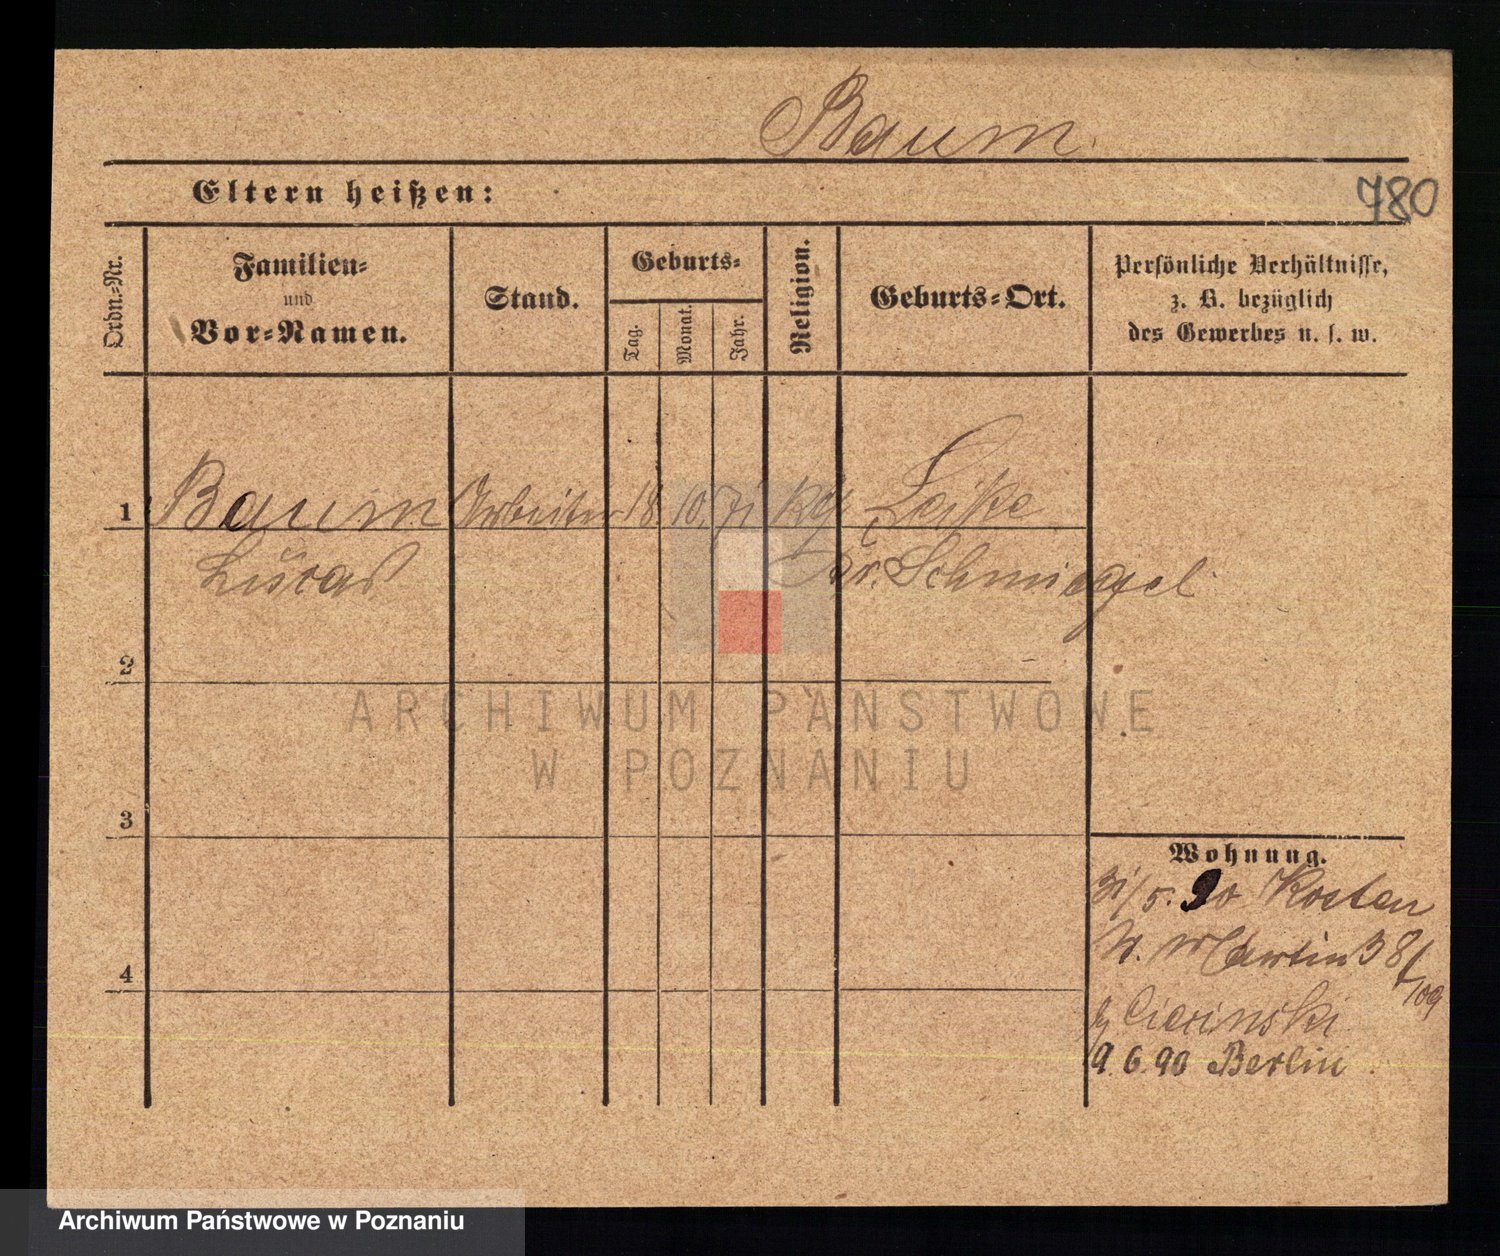 Baum.
Eltern heißen:
780
Ordn.=Nr.
Familien=
und
Vor=Namen.
Stand.
Geburts=
Tag.
Monat.
Jahr.
Religion.
Geburts=Ort.
Persönliche Verhältnisse,
z. B. bezüglich
des Gewerbes u. s. w.
1 Baum Arbeiter 18 10. 71 kg
Lucas Kr. Schmiegel
2
ARCHIWUM PAŃSTWOWE
W POZNANIU
3
Wohnung.
31/5. 90 Kosten
St. Martin 38/
109
9. 6. 90 Berlin
4
Archiwum Państwowe w Poznaniu